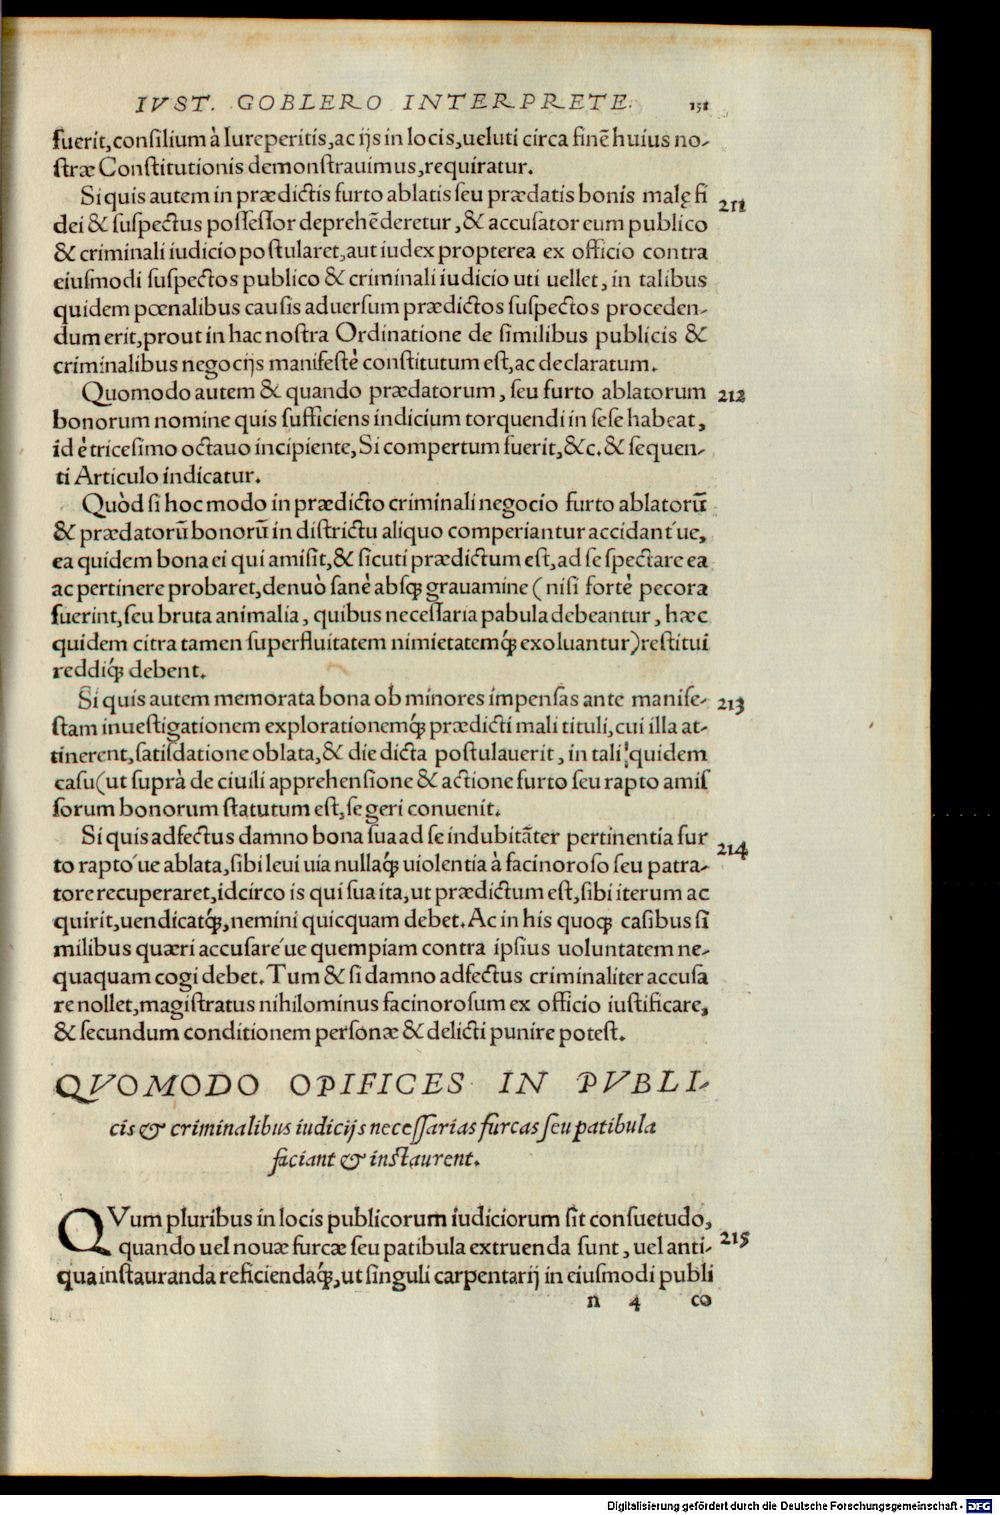 IVST. GOBLERO INTERPRETE. 151
fuerit, consilium à Iureperitis, ac ijs in locis, ueluti circa finē huius no-
stræ Constitutionis demonstrauimus, requiratur.
Si quis autem in prædictis furto ablatis seu prædatis bonis malę fi 211
dei & suspectus possessor deprehēderetur, & accusator eum publico
& criminali iudicio postularet, aut iudex propterea ex officio contra
eiusmodi suspectos publico & criminali iudicio uti uellet, in talibus
quidem pœnalibus causis aduersum prædictos suspectos proceden-
dum erit, prout in hac nostra Ordinatione de similibus publicis &
criminalibus negocijs manifestè constitutum est, ac declaratum.
Quomodo autem & quando prædatorum, seu furto ablatorum 212
bonorum nomine quis sufficiens indicium torquendi in sese habeat,
id è tricesimo octauo incipiente, Si compertum fuerit, &c. & sequen-
ti Articulo indicatur.
Quòd si hoc modo in prædicto criminali negocio furto ablatorū
& prædatorū bonorū in districtu aliquo comperiantur accidant'ue,
ea quidem bona ei qui amisit, & sicuti prædictum est, ad se spectare ea
ac pertinere probaret, denuò sanè absq; grauamine (nisi fortè pecora
fuerint, seu bruta animalia, quibus necessaria pabula debeantur, hæc
quidem citra tamen superfluitatem nimietatemq́; exoluantur) restitui
reddiq́; debent.
Si quis autem memorata bona ob minores impensas ante manife- 213
stam inuestigationem explorationemq́; prædicti mali tituli, cui illa at-
tinerent, satisdatione oblata, & die dicta postulauerit, in tali quidem
casu (ut suprà de ciuili apprehensione & actione furto seu rapto amis
sorum bonorum statutum est, se geri conuenit.
Si quis adfectus damno bona sua ad se indubitāter pertinentia fur 214
to rapto'ue ablata, sibi leui uia nullaq́; uiolentia à facinoroso seu patra-
tore recuperaret, idcirco is qui sua ita, ut prædictum est, sibi iterum ac
quirit, uendicatq́;, nemini quicquam debet. Ac in his quoq; casibus si
milibus quæri accusare'ue quempiam contra ipsius uoluntatem ne-
quaquam cogi debet. Tum & si damno adfectus criminaliter accusa
re nollet, magistratus nihilominus facinorosum ex officio iustificare,
& secundum conditionem personæ & delicti punire potest.
QVOMODO OPIFICES IN PVBLI-
cis & criminalibus iudicijs necessarias furcas seu patibula
faciant & instaurent.
QVum pluribus in locis publicorum iudiciorum sit consuetudo,
quando uel nouæ furcæ seu patibula extruenda sunt, uel anti- 215
qua instauranda reficiendaq́;, ut singuli carpentarij in eiusmodi publi
n 4 co
Digitalisierung gefördert durch die Deutsche Forschungsgemeinschaft - DFG